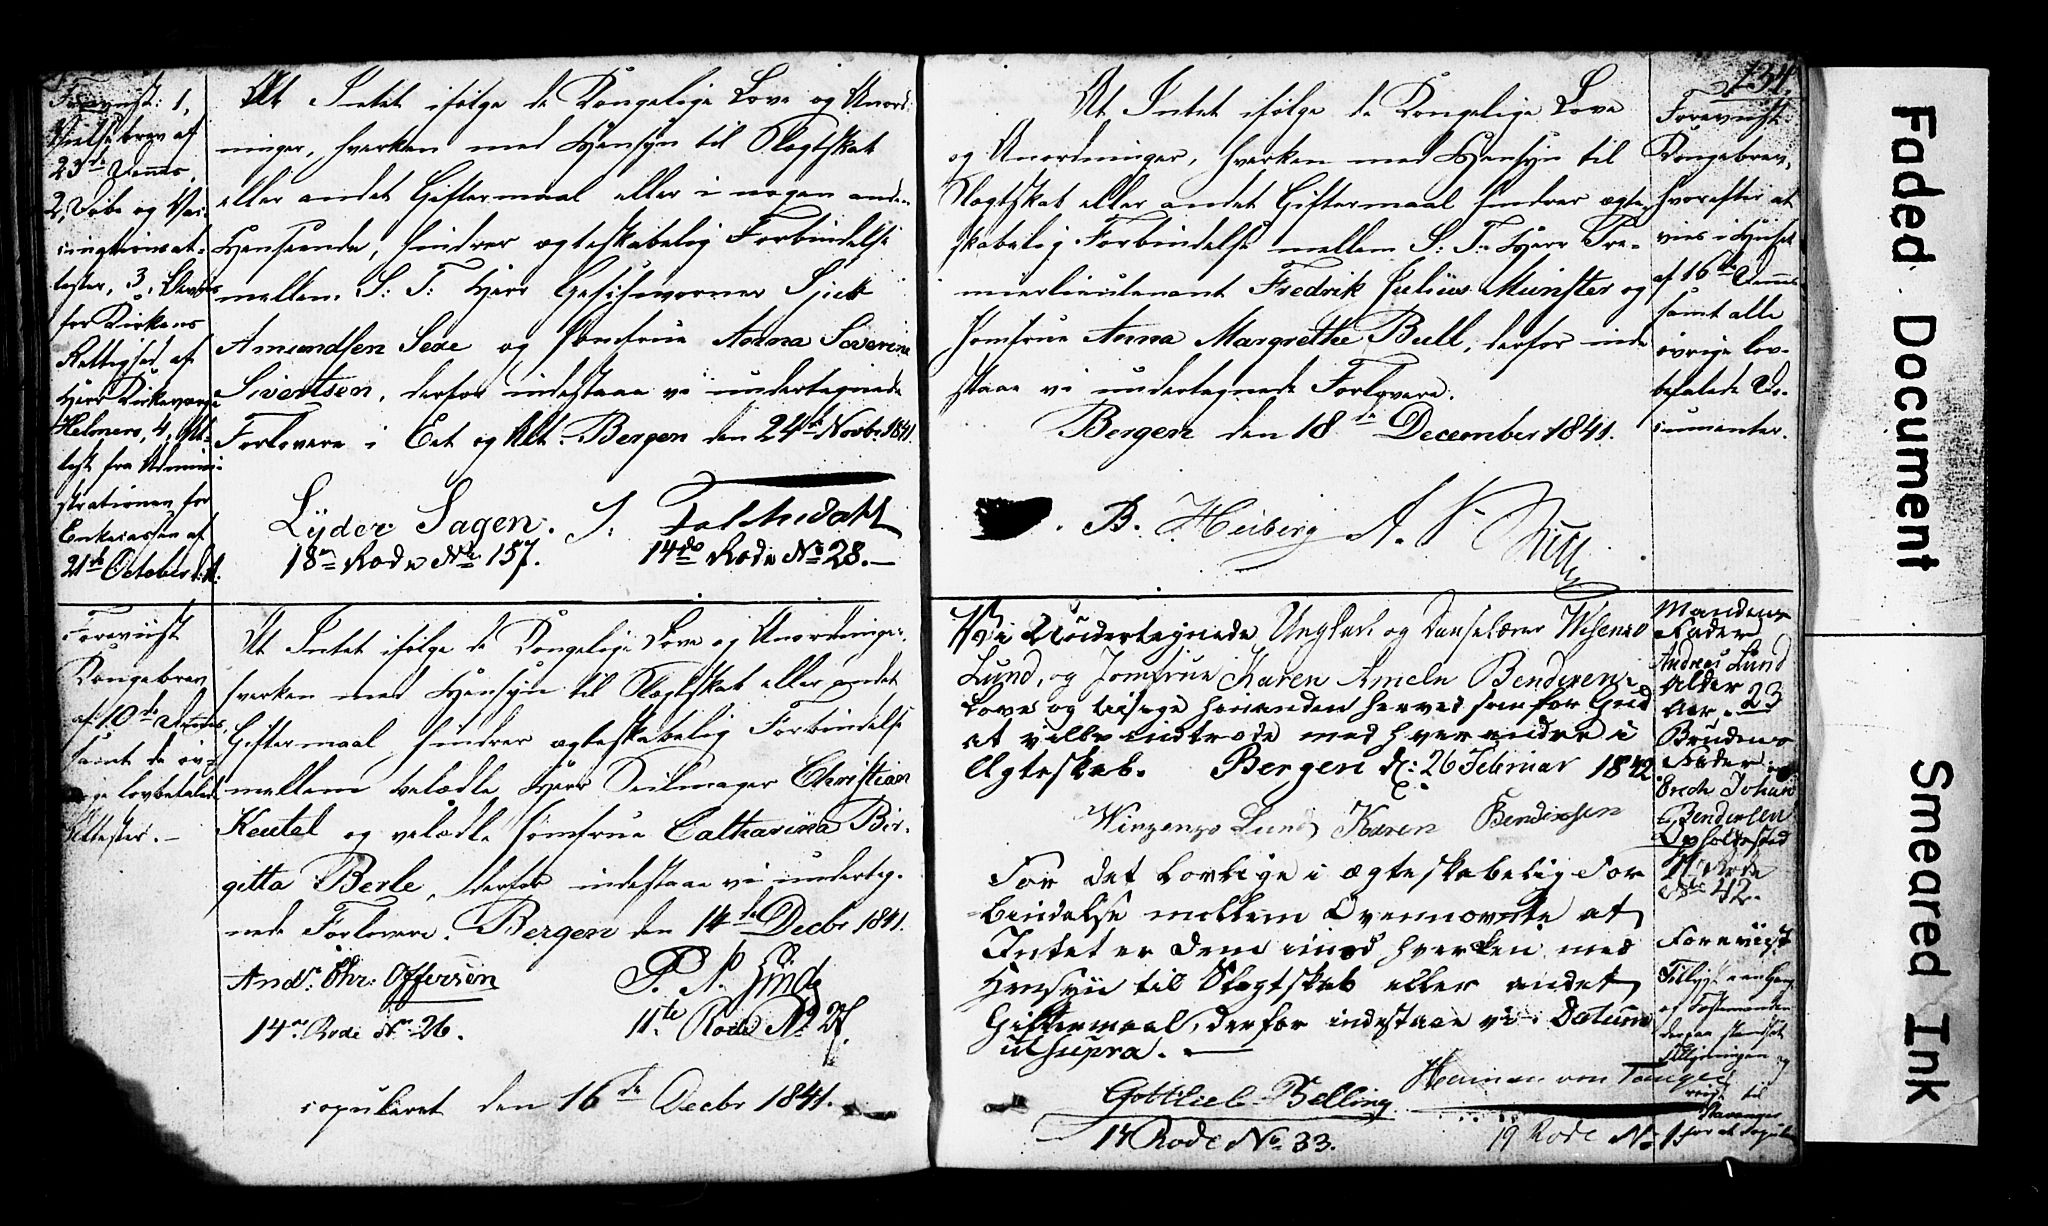 Forevist: 1,
Vielsebrev af
23de Dennes,
2, Døbe og Vac-
cinationsat-
tester, 3,
for Kirkens
Rettighed af
Herr Kirkeværge
Helmers, 4, At-
test fra Admini-
strationen for
Enkecassen af
21de October d: A:
At Intet ifølge de Kongelige Love og Anord-
ninger, hverken med Hensyn til Slægtskab
eller andet Giftermaal eller i nogen anden
Henseende, hindrer ægteskabelig Forbindelse
mellem S: T: Herr
Amundsen Sexe og Jomfrue Anna Severine
Sivertsen, derfor indestaae vi undertegnede
Forlovere i Eet og Alt. Bergen den 24de Novbr. 1841.
Lyder Sagen.
18de Rode No 157. 14de Rode No 28.
Forevist
Kongebrev
af 10de Dennes,
samt de øv-
rige lovbefalede
Attester.
At Intet ifølge de Kongelige Love og Anordninger,
hverken med Hensyn til Slægtskab eller andet
Giftermaal, hindrer ægteskabelig Forbindelse
mellem velædle Herr Seilmager Christian
Keutel og velædle Jomfrue Catharina Bir-
gitta Berle, derfor indestaae vi underteg-
nede Forlovere. Bergen den 14de Decbr 1841.
Andr. Chr: Offersen P. N. Lind
14de Rode No 26. 11te Rode No 27.
copuleret den 16de Decbr 1841.
134.
At Intet ifølge de Kongelige Love
og Anordninger, hverken med Hensyn til
Slægtskab eller andet Giftermaal hindrer ægte-
skabelig Forbindelse mellem S: T: Herr Pre-
mierlieutenant Fredrik Julius Munster og
Jomfrue Anna Margrethe Bull, derfor inde
staae vi undertegnede Forlovere.
Bergen den 18de December 1841.
B. Heiberg
Forevist:
Kongebrev,
hvorefter at
vies i Huset
af 16de Dennes
samt alle
øvrige lov-
befalede Do-
cumenter.
Vi Undertegnede Ungkarl og Dandselærer
Lund, og Jomfrue Karen Ameln Bendixen,
Love og tilsige hinanden herved for Gud
at ville indtræde med hverandre i
Ægteskab. Bergen d: 26 Februar 1842
Winzenzo Lund Karen Bendixsen
For det Lovlige i ægteskabelig For
bindelse mellem Ovennævnte at
Intet er dem imod hverken med
Hensyn til Slægtskab eller andet
Giftermaal, derfor indestaae vi Datum
ut supra.
Gottlieb Belling Herman von Tangen
14 Rode No 33. 19 Rode No 1
Mandens
Fader
Andreas Lund
Alder
Aar. 23
Brudens
Fader
Johan
Bendixsen
Opholdsted
Rode
No 42.
Forevist
Faded Document
Smeared Ink